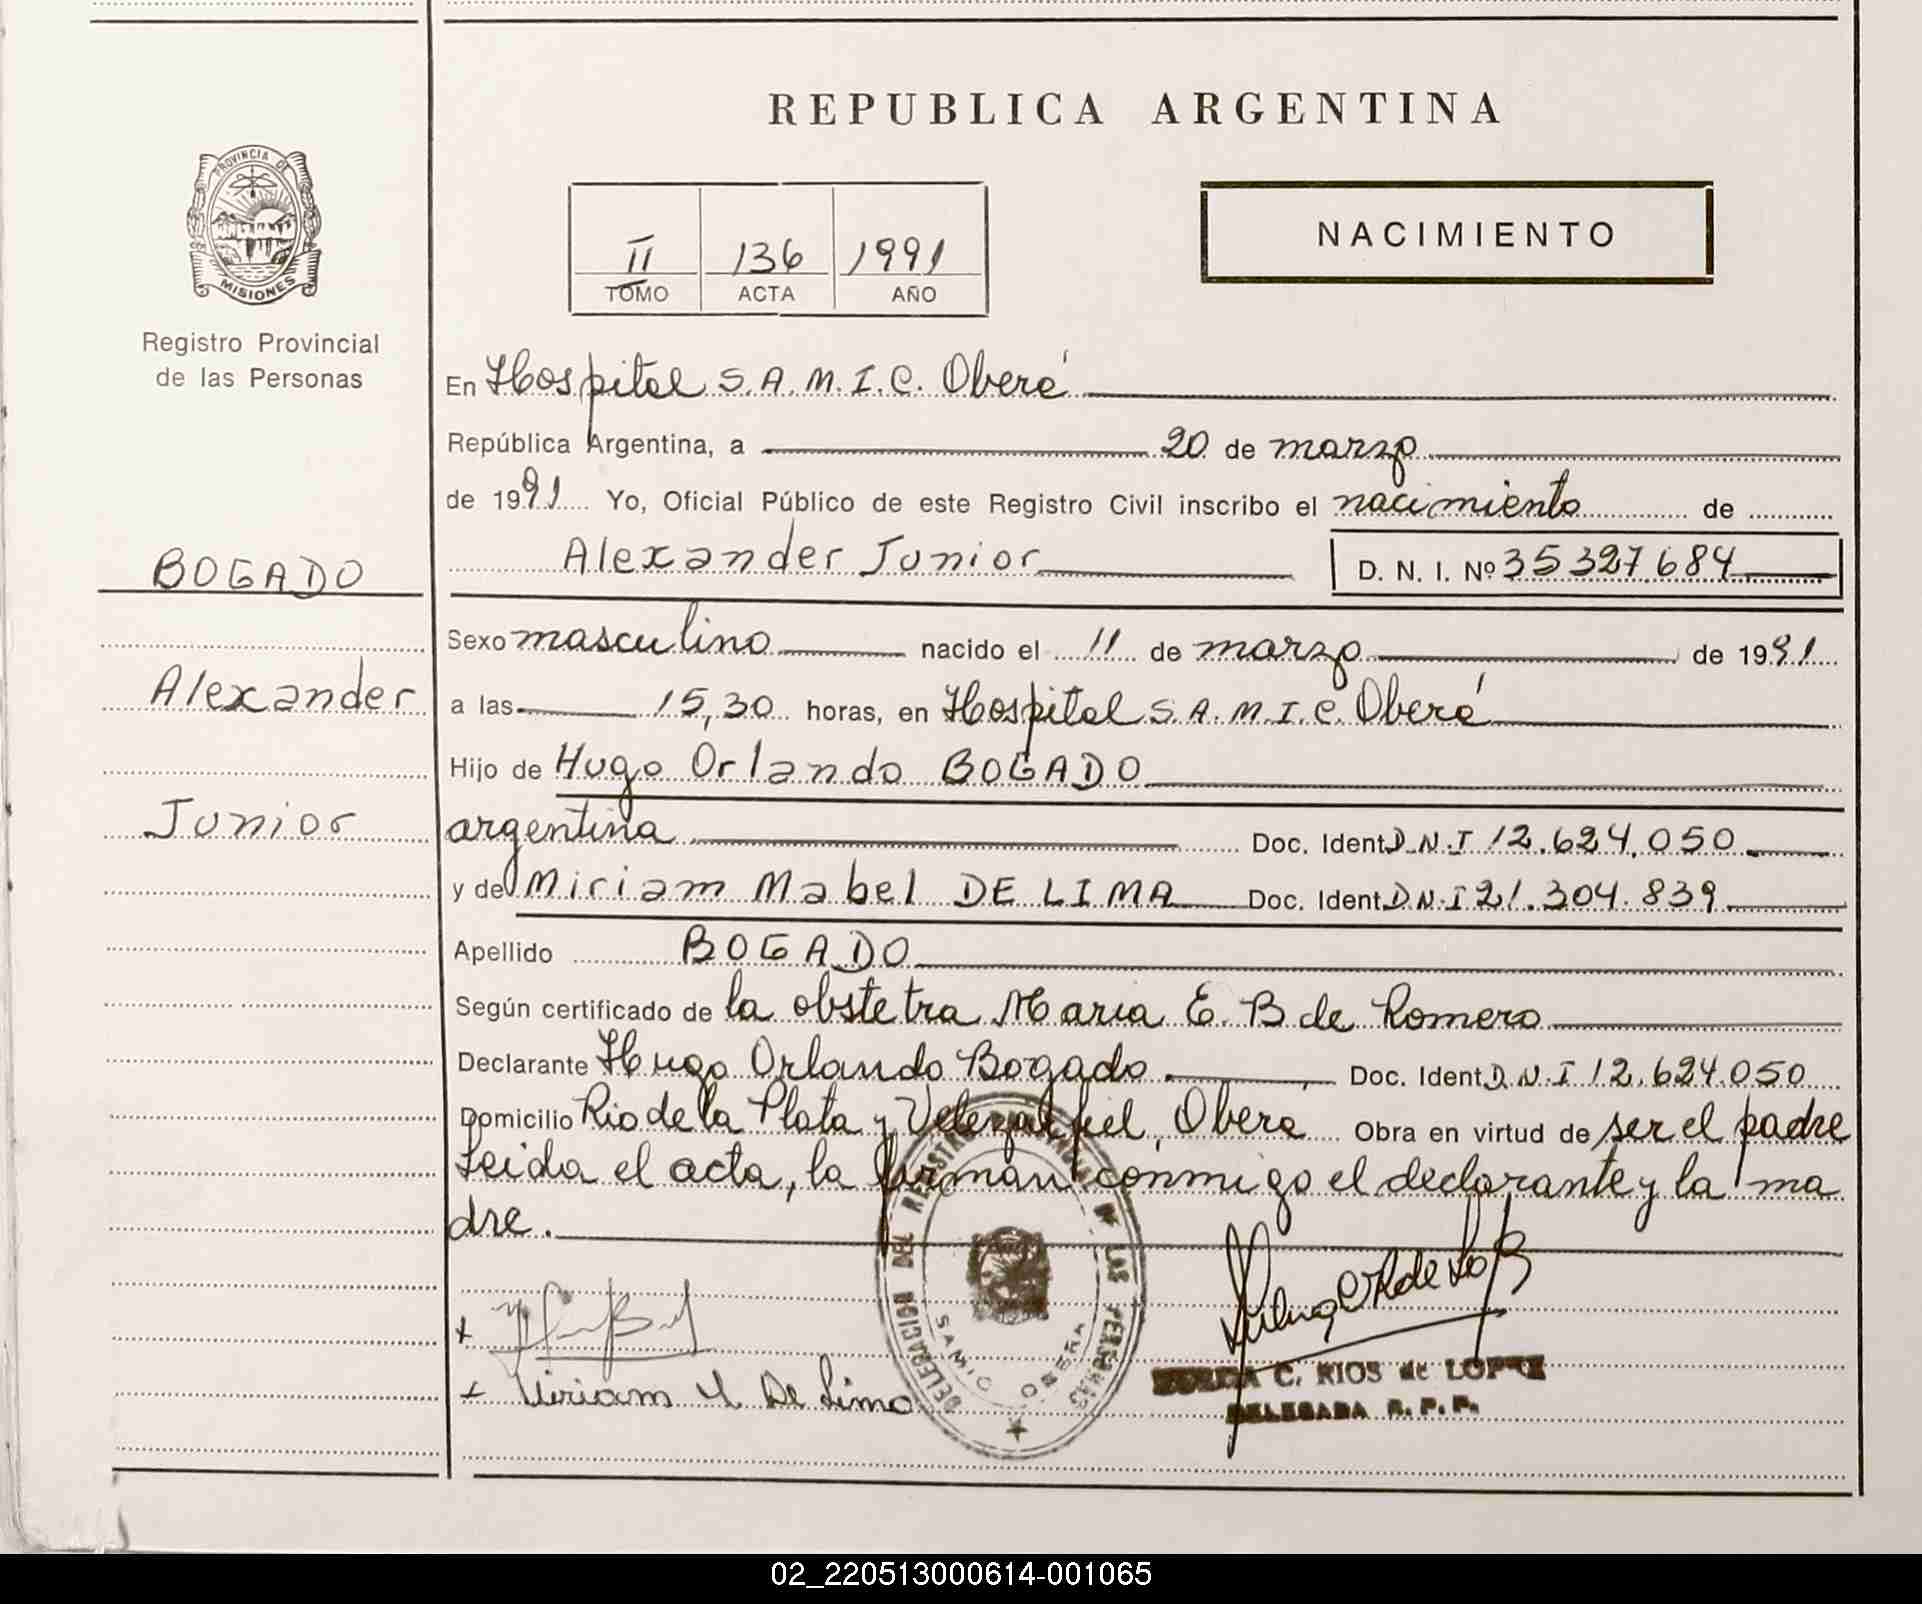 REPUBLICA ARGENTINA
PROVINCIA DE
MISIONES
Registro Provincial
de las Personas
II 136 1991
TOMO ACTA AÑO
NACIMIENTO
En Hospital S.A.M.I.C. Oberá
República Argentina, a 20 de marzo
de 1991 Yo, Oficial Público de este Registro Civil inscribo el nacimiento de
Alexander Junior D. N. I. Nº 35327684
BOGADO
Alexander
Junior
Sexo masculino nacido el 11 de marzo de 1991
a las 15,30 horas, en Hospital S.A.M.I.C. Oberá
Hijo de Hugo Orlando BOGADO
argentina Doc. Ident. D.N.I 12.624.050
y de Miriam Mabel DE LIMA Doc. Ident. D.N.I 21.304.839
Apellido BOGADO
Según certificado de la obstetra Maria E. B de Romero
Declarante Hugo Orlando Bogado Doc. Ident. D.N.I 12.624.050
Domicilio Rio de la Plata y Velezarfiel, Obera Obra en virtud de ser el padre
Leida el acta, la firman conmigo el declarante y la ma
dre.
DELEGACION DEL REGISTRO PROVINCIAL DE LAS PERSONAS
SAMIC OBERA
Miriam M De Lima
C. RIOS de LOPEZ
DELEGADA R. P. P.
02_220513000614-001065